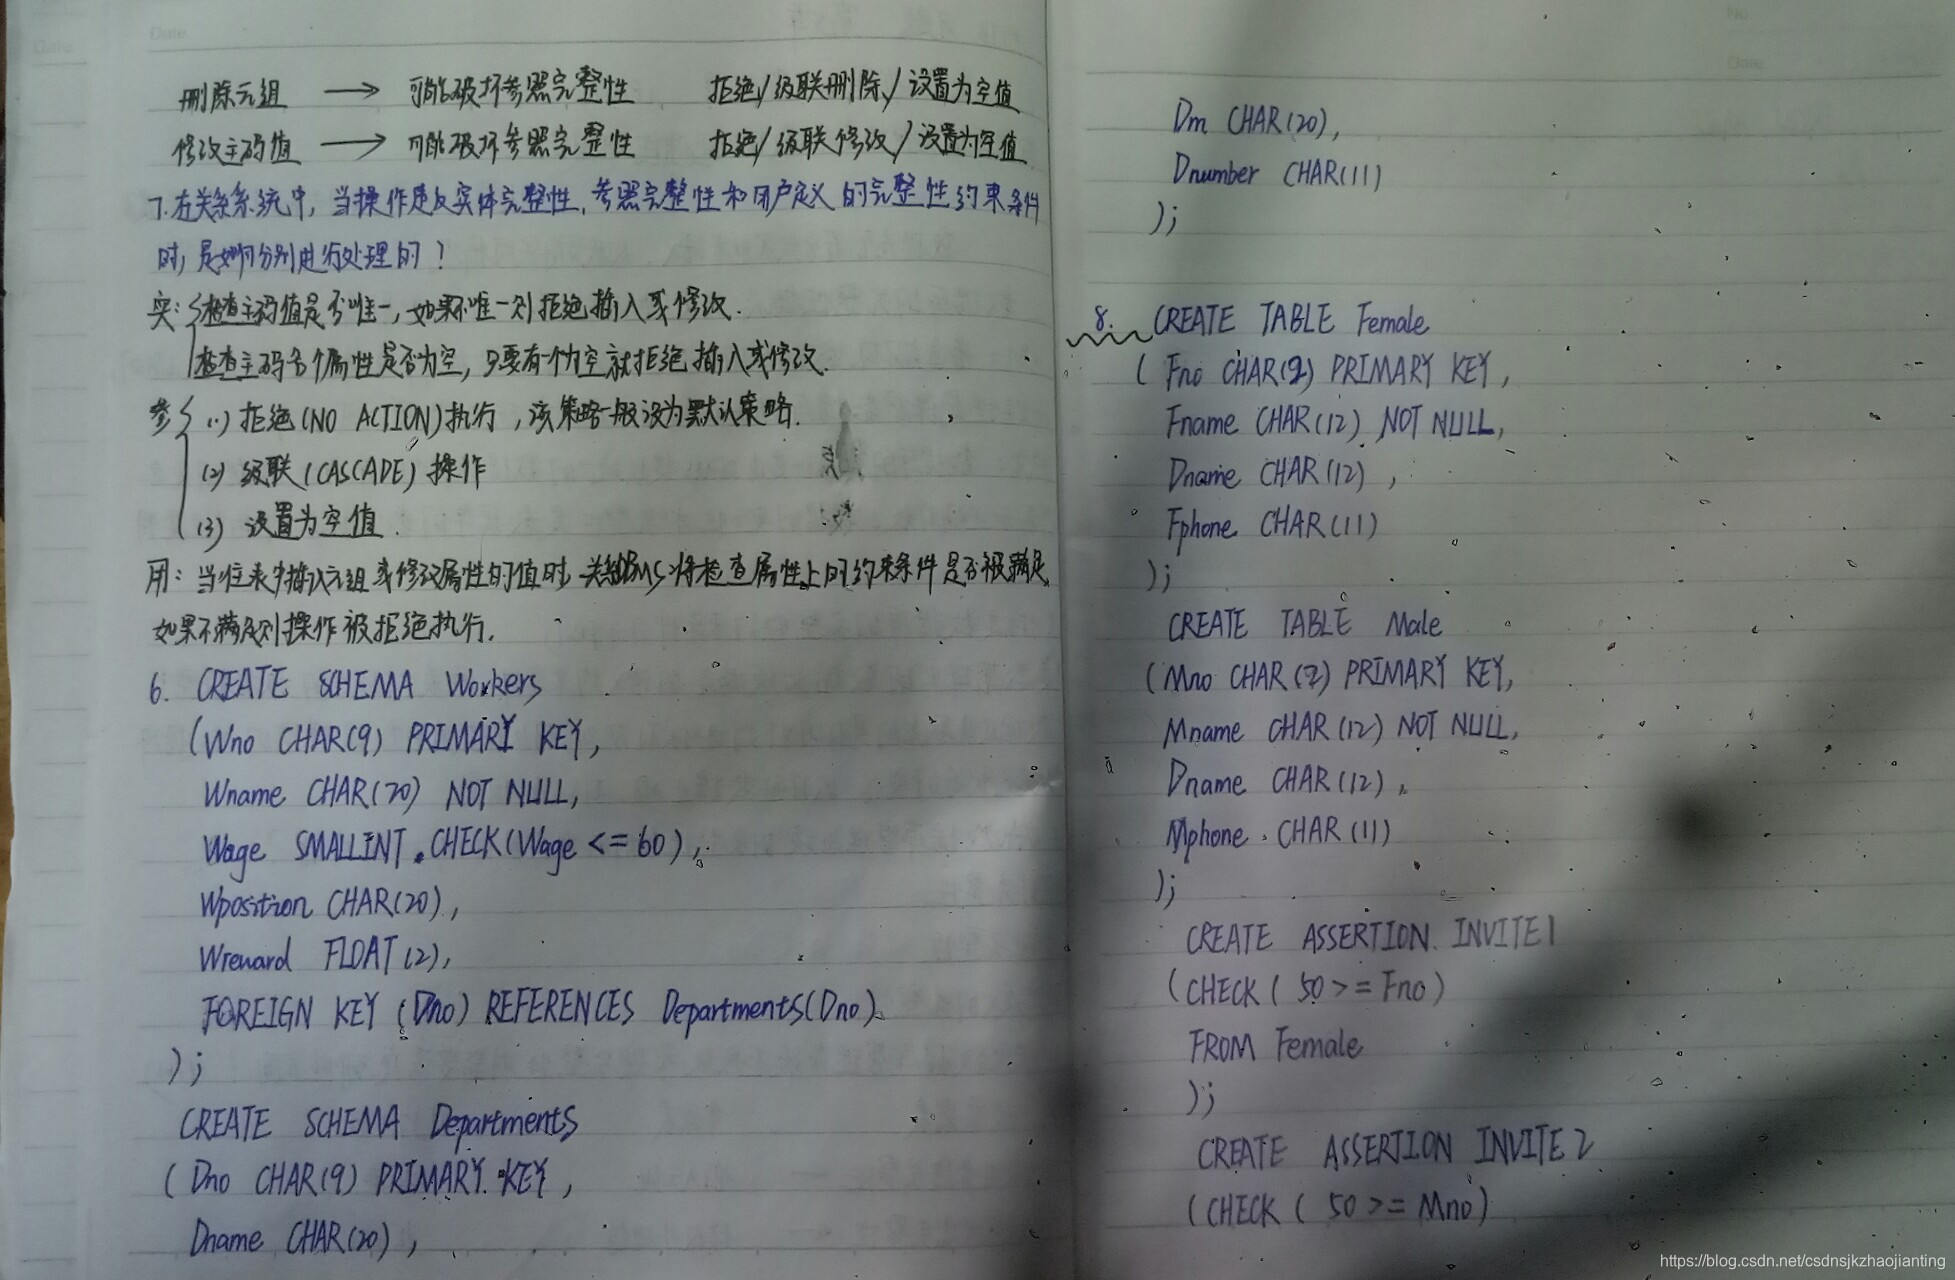 删除元组 → 可能破坏参照完整性 拒绝/级联删除/设置为空值
修改主码值 → 可能破坏参照完整性 拒绝/级联修改/设置为空值
7.在关系系统中,当操作违反实体完整性,参照完整性和用户定义的完整性约束条件
时,是如何分别进行处理的?
实:检查主码值是否唯一,如果不唯一则拒绝插入或修改.
检查主码各个属性是否为空,只要有个为空就拒绝插入或修改.
参 (1) 拒绝(NO ACTION)执行,该策略一般设为默认策略.
(2) 级联(CASCADE)操作
(3) 设置为空值.
用:当往表中插入元组或修改属性的值时,关系DBMS将检查属性上的约束条件是否被满足,
如果不满足则操作被拒绝执行.
6. CREATE SCHEMA Workers
(Wno CHAR(9) PRIMARY KEY,
Wname CHAR(20) NOT NULL,
Wage SMALLINT CHECK(Wage <= 60),
Wposition CHAR(20),
Wreward FLOAT(2),
FOREIGN KEY (Dno) REFERENCES Departments(Dno)
);
CREATE SCHEMA Departments
(Dno CHAR(9) PRIMARY KEY,
Dname CHAR(20),
Dm CHAR(20),
Dnumber CHAR(11)
);
8. CREATE TABLE Female
(Fno CHAR(2) PRIMARY KEY,
Fname CHAR(12) NOT NULL,
Dname CHAR(12),
Fphone CHAR(11)
);
CREATE TABLE Male
(Mno CHAR(2) PRIMARY KEY,
Mname CHAR(12) NOT NULL,
Dname CHAR(12),
Mphone CHAR(11)
);
CREATE ASSERTION INVITE1
(CHECK( 50 >= Fno)
FROM Female
);
CREATE ASSERTION INVITE2
(CHECK( 50 >= Mno)
https://blog.csdn.net/csdnsjkzhaojianting